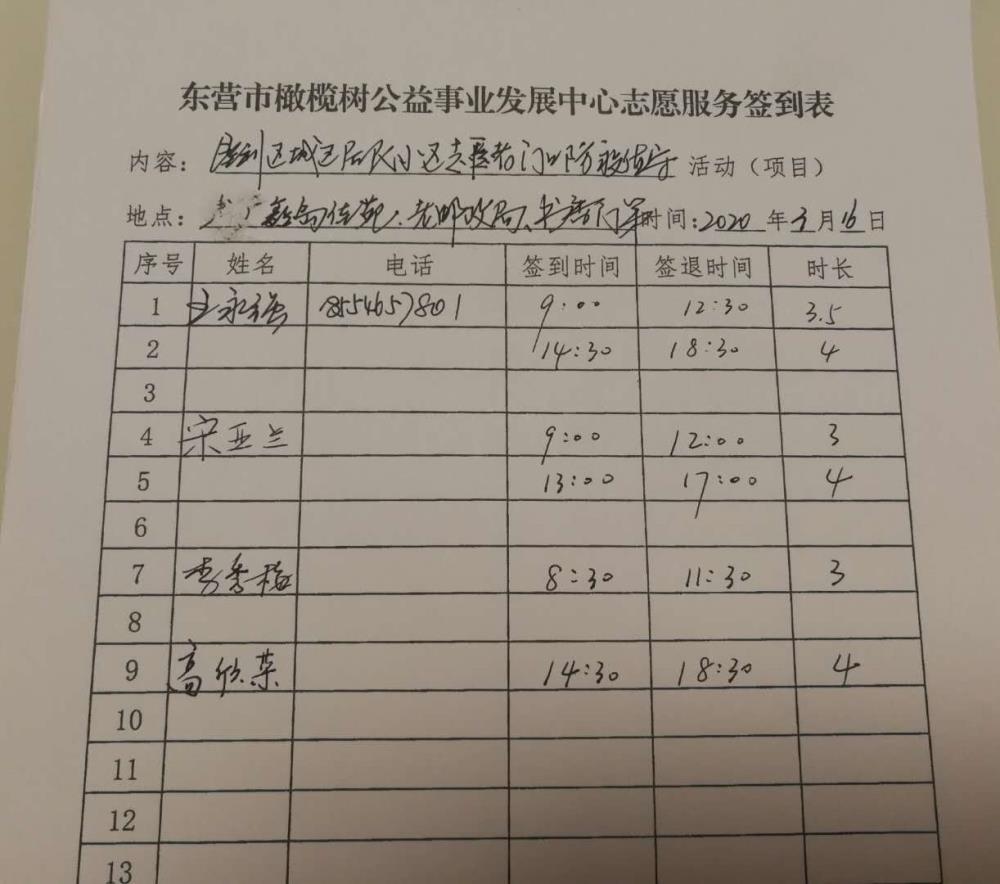 东营市橄榄树公益事业发展中心志愿服务签到表
内容: 垦利区城区居民小区志 门口防疫值守 活动（项目）
地点: 佳苑、老邮政局、 时间:2020 年 3 月 16 日
序号 姓名 电话 签到时间 签退时间 时长
1 王永强 18554657801 9:00 12:30 3.5
2 14:30 18:30 4
3
4 宋亚兰 9:00 12:00 3
5 13:00 17:00 4
6
7 李秀梅 8:30 11:30 3
8
9 高欣荣 14:30 18:30 4
10
11
12
13